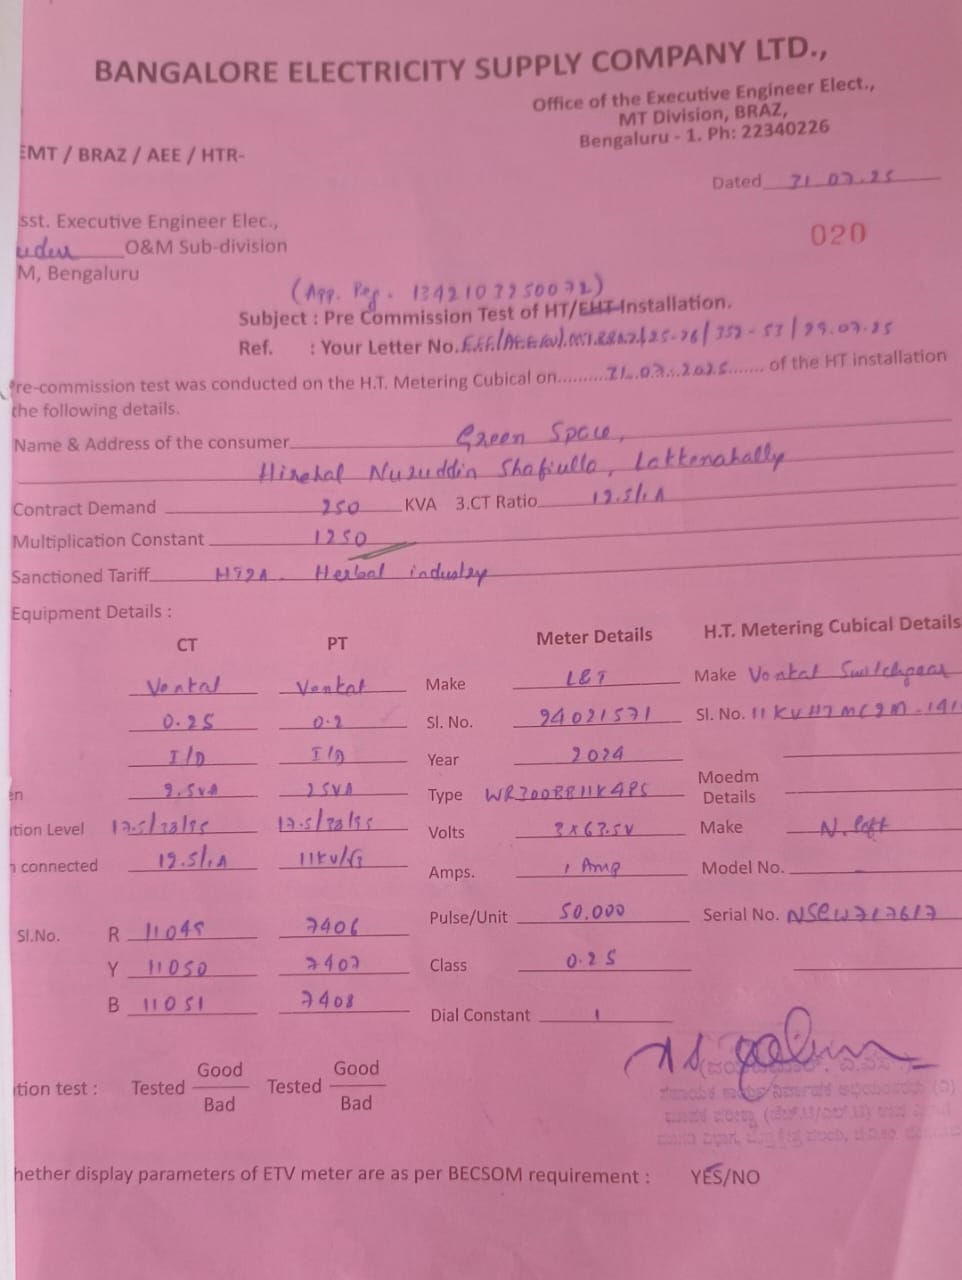 BANGALORE ELECTRICITY SUPPLY COMPANY LTD.,
Office of the Executive Engineer Elect.,
MT Division, BRAZ,
Bengaluru - 1. Ph: 22340226
EMT / BRAZ / AEE / HTR-
Dated 31.07.25
sst. Executive Engineer Elec.,
O&M Sub-division
020
M, Bengaluru
(App. Reg. 1342103250072)
Subject : Pre Commission Test of HT/EHT Installation.
Ref. : Your Letter No. 25-26/352-53/29.07.25
Pre-commission test was conducted on the H.T. Metering Cubical on.........31.07.2025....... of the HT installation
the following details.
Name & Address of the consumer Green Space,
Hirehal Nuruddin Shafiulla, Lakkenahally
Contract Demand 250 KVA 3.CT Ratio 12.5/1A
Multiplication Constant 1250
Sanctioned Tariff HT2A. Herbal industry
Equipment Details :
CT PT Meter Details H.T. Metering Cubical Details
Venkal Venkal Make L&T Make Switchgear
0.2S 0.2 Sl. No. 24021531 Sl. No.
I/D I/D Year 2024
en 2.5VA 25VA Type Moedm Details
tion Level 12.5/28/75 12.5/28/75 Volts 3x63.5V Make N.Soft
n connected 12.5/1A 11KV/√3 Amps. 1 Amp Model No.
Pulse/Unit 50,000 Serial No.
Sl.No. R 11049 7406
Y 11050 7407 Class 0.2S
B 11051 7408 Dial Constant 1
tion test : Tested Good/Bad Tested Good/Bad
hether display parameters of ETV meter are as per BECSOM requirement : YES/NO